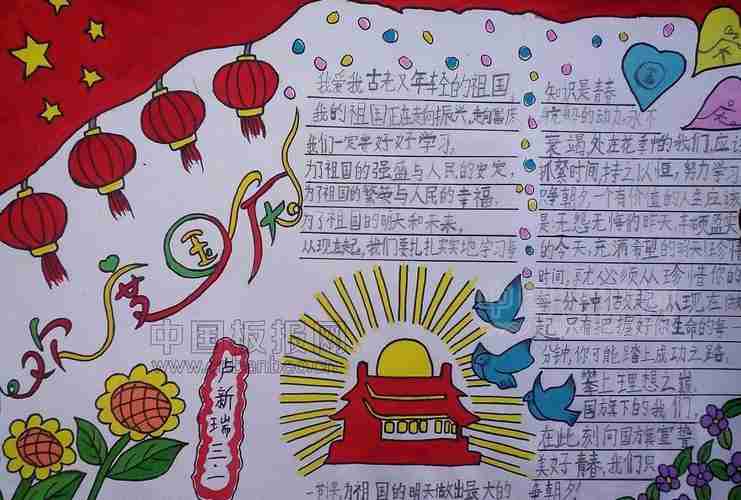 欢度国庆
我爱我古老又年轻的祖国,
我的祖国正在走向振兴,走向富庶
我们一定要好好学习。
为了祖国的强盛与人民的安定,
为了祖国的繁荣与人民的幸福,
为了祖国的明天和未来,
从现在起,我们要扎扎实实地学习
知识是青春
的动力,永不
衰竭处在花季的我们,应该
抓紧时间,持之以恒,努力学习
争朝夕一个有价值的人生应该
是无怨无悔的昨天,硕盈实
的今天,充满希望的明天珍惜
时间,就必须从珍惜你的
每一分钟做起,从现在做
起,只有把握好你生命的每一
分钟,你可能踏上成功之路,
攀上理想之巅
国旗下的我们,
在此刻向国旗宣誓
美好青春,我们只
争朝夕
卢新瑞
三.一
为祖国的明天做出最大的
中国板报网